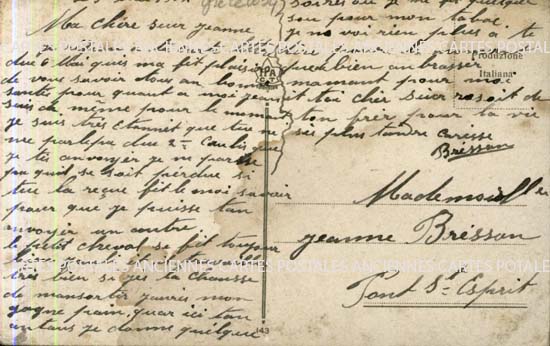 Ma chère sœur jeanne
du 6 Mai qui ma fait plaisir
de vous savoir tous an bonne
santé pour quant a moi jeanr
suis de même pour le moment
je suis très Etonnet que tue ne
me parle pas due 2me
je tès anvoyer je ne
pas quil se soit perdue si
tue la reçue fèt le moi savoir
pour que je puisse tan
anvoyer un autre
le petit cheval se fèt toujour
très bien si jes la chansse
de mansortir jaures mon
gagne pram, quar ici tan
an tans je donne quelque
soires ou je me fès quelque
sou pour mon tabac
je ne voi rien plus a te
que bien un brasser
mamant pour moi
it toi chèr sœur resoit de
ton frèr pour la vie
ses plus tandre caresse
Bresson
Produzione
Italiana
Mademoiselle
jeanne Bresson
Pont St Esprit
143
CARTES POSTALES ANCIENNES CARTES POSTALES ANCIENNES CARTES POTALE
CARTES POSTALES ANCIENNES CARTES POSTALES ANCIENNES CARTES POTALES